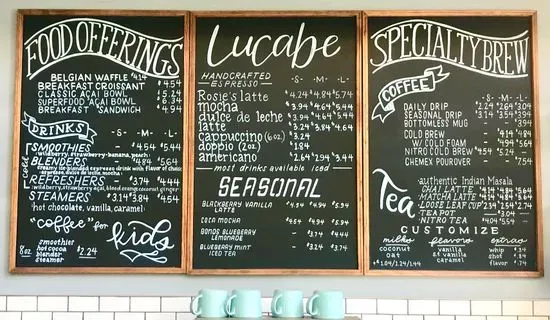 FOOD OFFERINGS
BELGIAN WAFFLE $4.14
BREAKFAST CROISSANT $4.54
CLASSIC AÇAI BOWL $5.24
SUPERFOOD AÇAI BOWL $6.34
BREAKFAST SANDWICH $4.94
DRINKS -S- -M- -L-
cold
SMOOTHIES - $4.54 $5.44
(wildberry, strawberry-banana, peach)
BLENDERS - $4.84 $5.64
REFRESHERS - $3.74 $4.44
(wildberry, strawberry açai, blood orange, coconut ginger)
STEAMERS $3.14 $3.84 $4.54
hot chocolate, vanilla, caramel
"coffee" for kids
smoothier
hot cocoa
blender
steamer
8oz $2.24
Lucabe
HANDCRAFTED
ESPRESSO -S- -M- -L-
Rosie's latte $4.24 $4.84 $5.74
mocha $3.94 $4.64 $5.44
dulce de leche $3.94 $4.64 $5.44
latte $3.24 $3.84 $4.64
cappuccino (6oz) $3.24
doppio (2oz) $1.84
americano $2.64 $2.94 $3.44
most drinks available iced
SEASONAL
BLACKBERRY VANILLA
LATTE $4.34 $4.94 $5.94
COCA MOCHA $4.54 $4.94 $5.94
BONDS BLUEBERRY
LEMONADE - $3.74 $4.44
BLUEBERRY MINT
ICED TEA - $3.24 $3.74
SPECIALTY BREW
COFFEE -S- -M- -L-
DAILY DRIP $2.24 $2.64 $3.04
SEASONAL DRIP $3.14 $3.54 $3.94
BOTTOMLESS MUG - - $3.94
COLD BREW - $4.14 $4.84
W/ COLD FOAM - $4.94 $5.64
NITRO COLD BREW $4.54 $5.24 -
CHEMEX POUROVER - - $7.54
Tea
authentic Indian Masala
CHAI LATTE $4.14 $4.84 $5.64
MATCHA LATTE $4.14 $4.84 $5.64
LOOSE LEAF CUP $2.34 $2.54 $2.74
TEA POT - - $3.04
NITRO TEA $4.04 $5.54 -
CUSTOMIZE
milks flavors extras
coconut vanilla whip $.34
oat sf vanilla shot $.84
$1.04/1.24/1.44 caramel flavor $.74